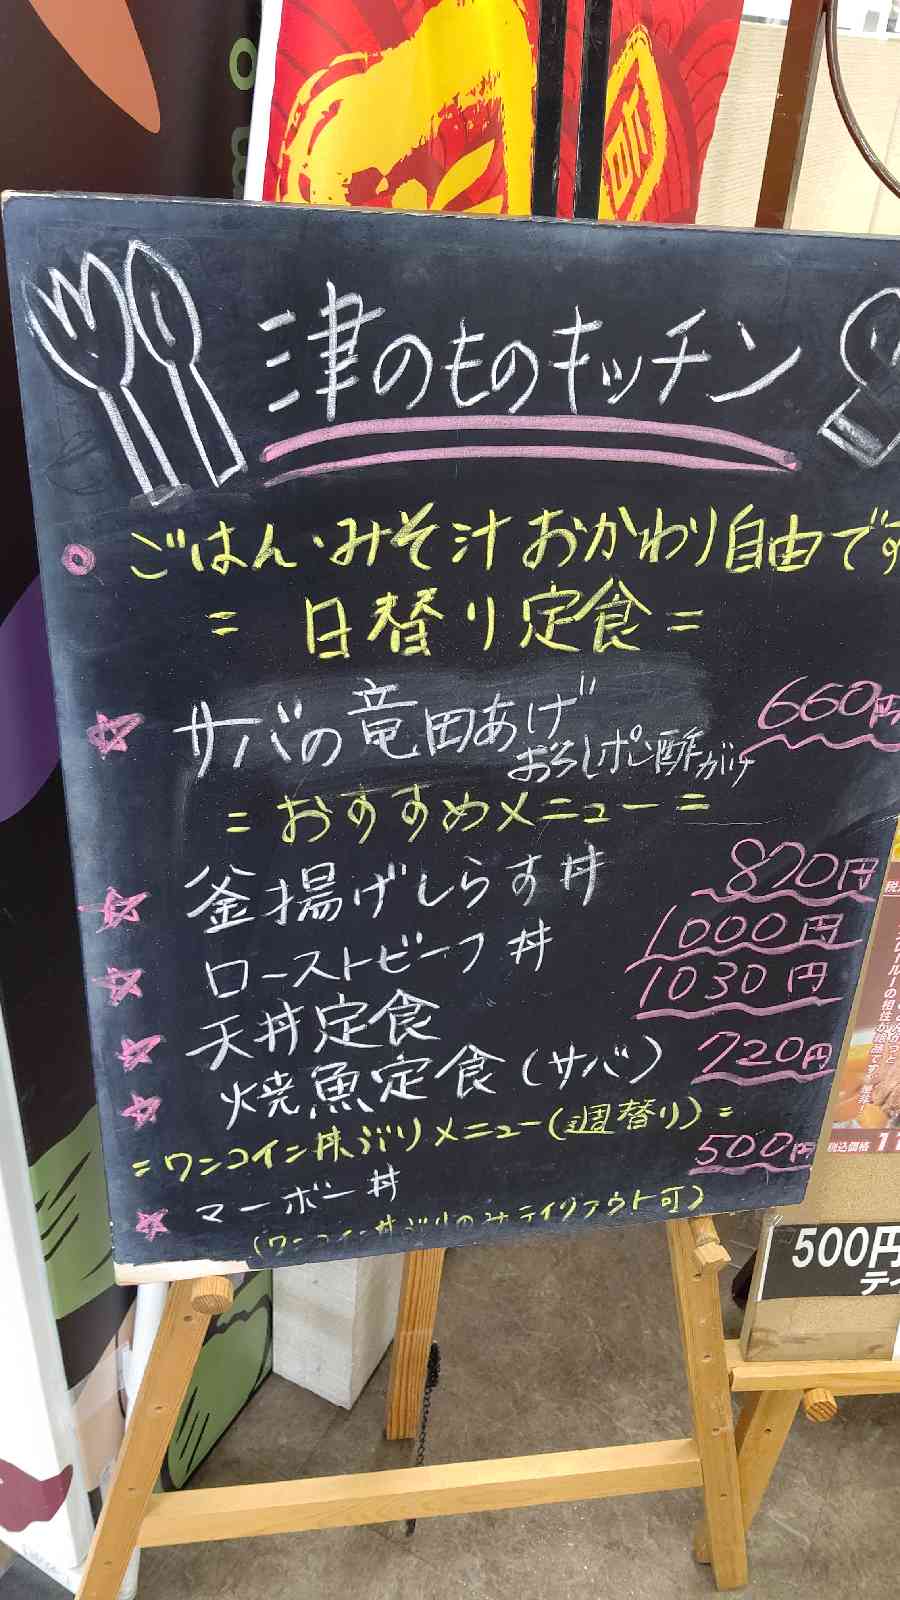 津のものキッチン
ごはん・みそ汁おかわり自由です
= 日替り定食 =
サバの竜田あげ 660円
おろしポン酢がけ
= おすすめメニュー =
釜揚げしらす丼 820円
ローストビーフ丼 1000円
天丼定食 1030円
焼魚定食(サバ) 720円
= ワンコイン丼ぶりメニュー(週替り) =
マーボー丼 500円
(ワンコイン丼ぶりのみテイクアウト可)
の相性が絶品です
税込価格 11
500円
テイ